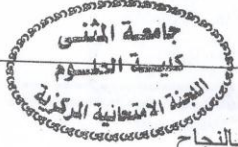 جامعة المثنى
كلية العلوم
اللجنة الامتحانية المركزية
بالنجاح